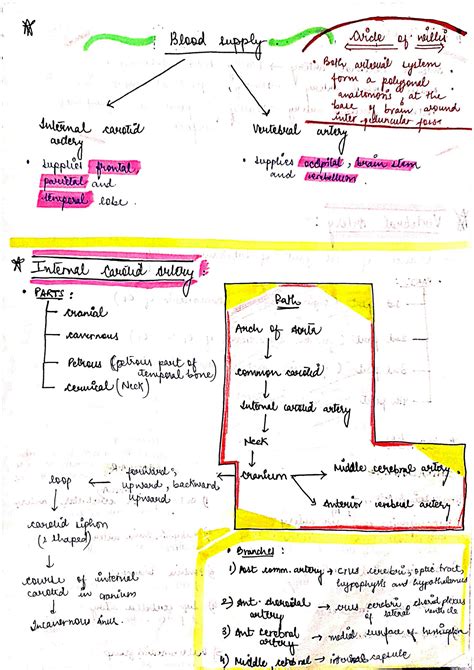 Blood supply
Circle of willis
• Both arterial system
form a polygonal
anatomosis at the
base of brain around
inter peduncular fossa
Internal carotid
artery
• Supplies frontal,
parietal and
temporal lobe.
Vertebral artery
• Supplies occipital, brain stem
and cerebellum
Internal Carotid Artery:
• PARTS:
cranial
cavernous
Petrous (petrous part of
temporal bone)
cervical (Neck)
Path
Arch of Aorta
common carotid
Internal carotid artery
Neck
cranium
Middle cerebral artery
Anterior cerebral artery
forward,
upward, backward
upward
loop
carotid siphon
(S shaped)
course of internal
carotid in cranium
Incavernous sinus.
• Branches:
1) Post comm. artery → crus cerebri, optic tract,
hypophysis and hypothalamus
2) Ant. choroidal → crus cerebri, choroid plexus
artery of lateral ventricle
3) Ant cerebral → medial surface of hemisphere
artery
4) Middle cerebral → internal capsule